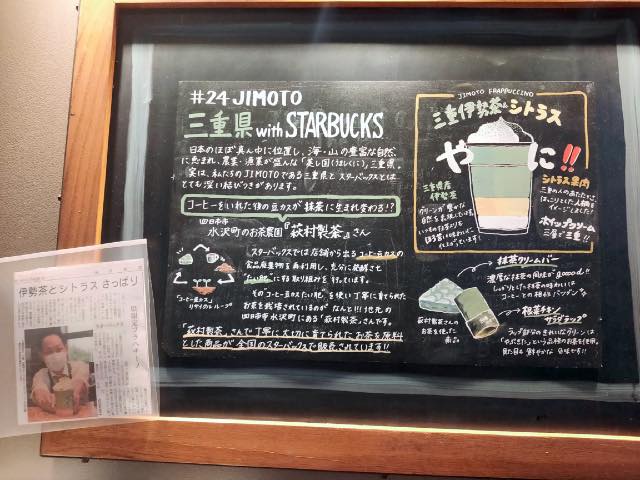 #24 JIMOTO
三重県 with STARBUCKS
日本のほぼ真ん中に位置し、海・山の豊富な自然
に恵まれ、農業・漁業が盛んな「美し国(うましくに)」三重県。
実は、私たちのJIMOTOである三重県とスターバックスとは
とても深い結びつきがあります。
コーヒーをいれた後の豆カスが抹茶に生まれ変わる!?
四日市市
水沢町のお茶農園『萩村製茶』さん
スターバックスでは店舗から出るコーヒー豆カスの
食品廃棄物を再利用し、充分に発酵させ
たい肥にする取り組みを行っています。
"コーヒー豆カス"
リサイクルループ
そのコーヒー豆のたい肥を使い丁寧に育てられた
お茶を栽培されているのがなんと!!!地元の
四日市市水沢町にある「萩村製茶」さんです。
「萩村製茶」さんで丁寧に大切に育てられたお茶を原料
とした商品が全国のスターバックスで販売されています!!
JIMOTO FRAPPUCCINO
三重伊勢茶&シトラス
やに!!
三重県産
伊勢茶
シトラス果肉
ホイップクリーム
三層で三重!!
抹茶クリームバー
濃厚な抹茶の風味がgoood!!
しっとりとした抹茶の味わいは
コーヒーとの相性バツグン
萩村製茶さんの
お茶を使った
商品
根菜チキン
サラダラップ
ラップ部分のきれいなグリーンは
「やぶきた」という品種のお茶を使用。
見た目も鮮やかな一品です!!
伊勢茶とシトラス さっぱり